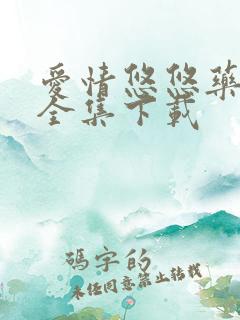 愛情悠悠藥
全集下載
碼字的
未经同意禁止转载